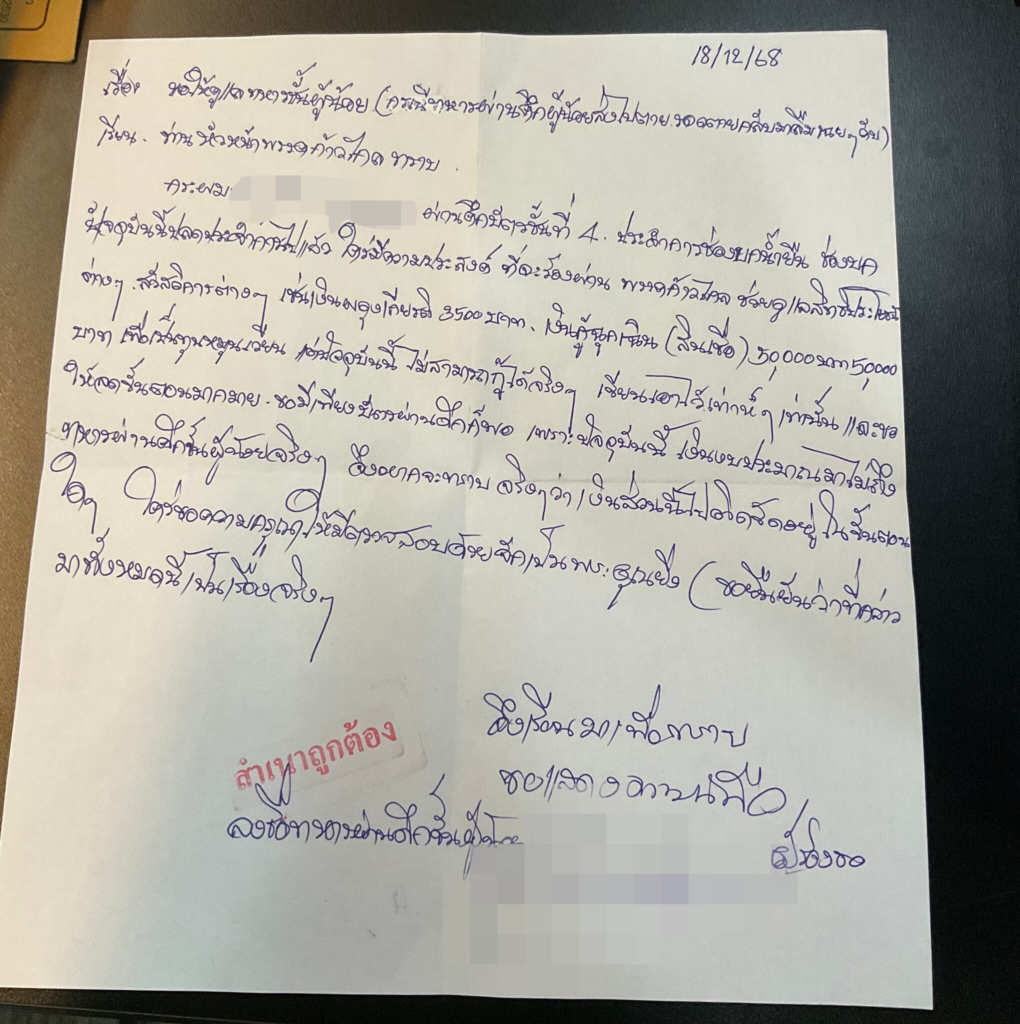 18/12/68
เรื่อง ขอให้ดูแลทหารชั้นผู้น้อย (กรณีทหารผ่านศึกผู้น้อยส่งไปตาย
เรียน. ท่านหัวหน้าพรรคก้าวไกล ทราบ.
กระผม
ผ่านศึกบัตรชั้นที่ 4. ประจำการช่องบกน้ำยืน ช่องบก
ปัจจุบันนี้ปลดประจำการไปแล้ว ใคร่มีความประสงค์ ที่จะร้องผ่าน พรรคก้าวไกล ช่วยดูแลสิทธิประโยชน์
ต่างๆ. สวัสดิการต่างๆ เช่นเงินผดุงเกียรติ 3500 บาท. เงินกู้ฉุกเฉิน (สินเชื่อ) 50,000 บาท 50,000
บาท เพื่อเป็นทุนหมุนเวียน แต่ปัจจุบันนี้ ไม่สามารถกู้ได้จริงๆ เขียนเอาไว้เท่ห์ๆ เท่านั้น และขอ
ให้ลดขั้นตอนมากมาย. ขอมีเพียงบัตรผ่านศึกก็พอ เพราะปัจจุบันนี้ เงินงบประมาณมาไม่ถึง
ทหารผ่านศึกชั้นผู้น้อยจริงๆ จึงอยากจะทราบ จริงๆ ว่า เงินส่วนนี้ไปติดขัดอยู่ ในขั้นตอน
ใดๆ ใคร่ขอความกรุณา ให้มีตรวจสอบด้วยจักเป็นพระคุณยิ่ง (ขอยืนยันว่าที่กล่าว
มาทั้งหมดนี้ เป็นเรื่องจริงๆ
จึงเรียนมาเพื่อทราบ
ขอแสดงความนับถือ
สำเนาถูกต้อง
ลงชื่อทหารผ่านศึกชั้นผู้น้อย
ผู้ร้องขอ